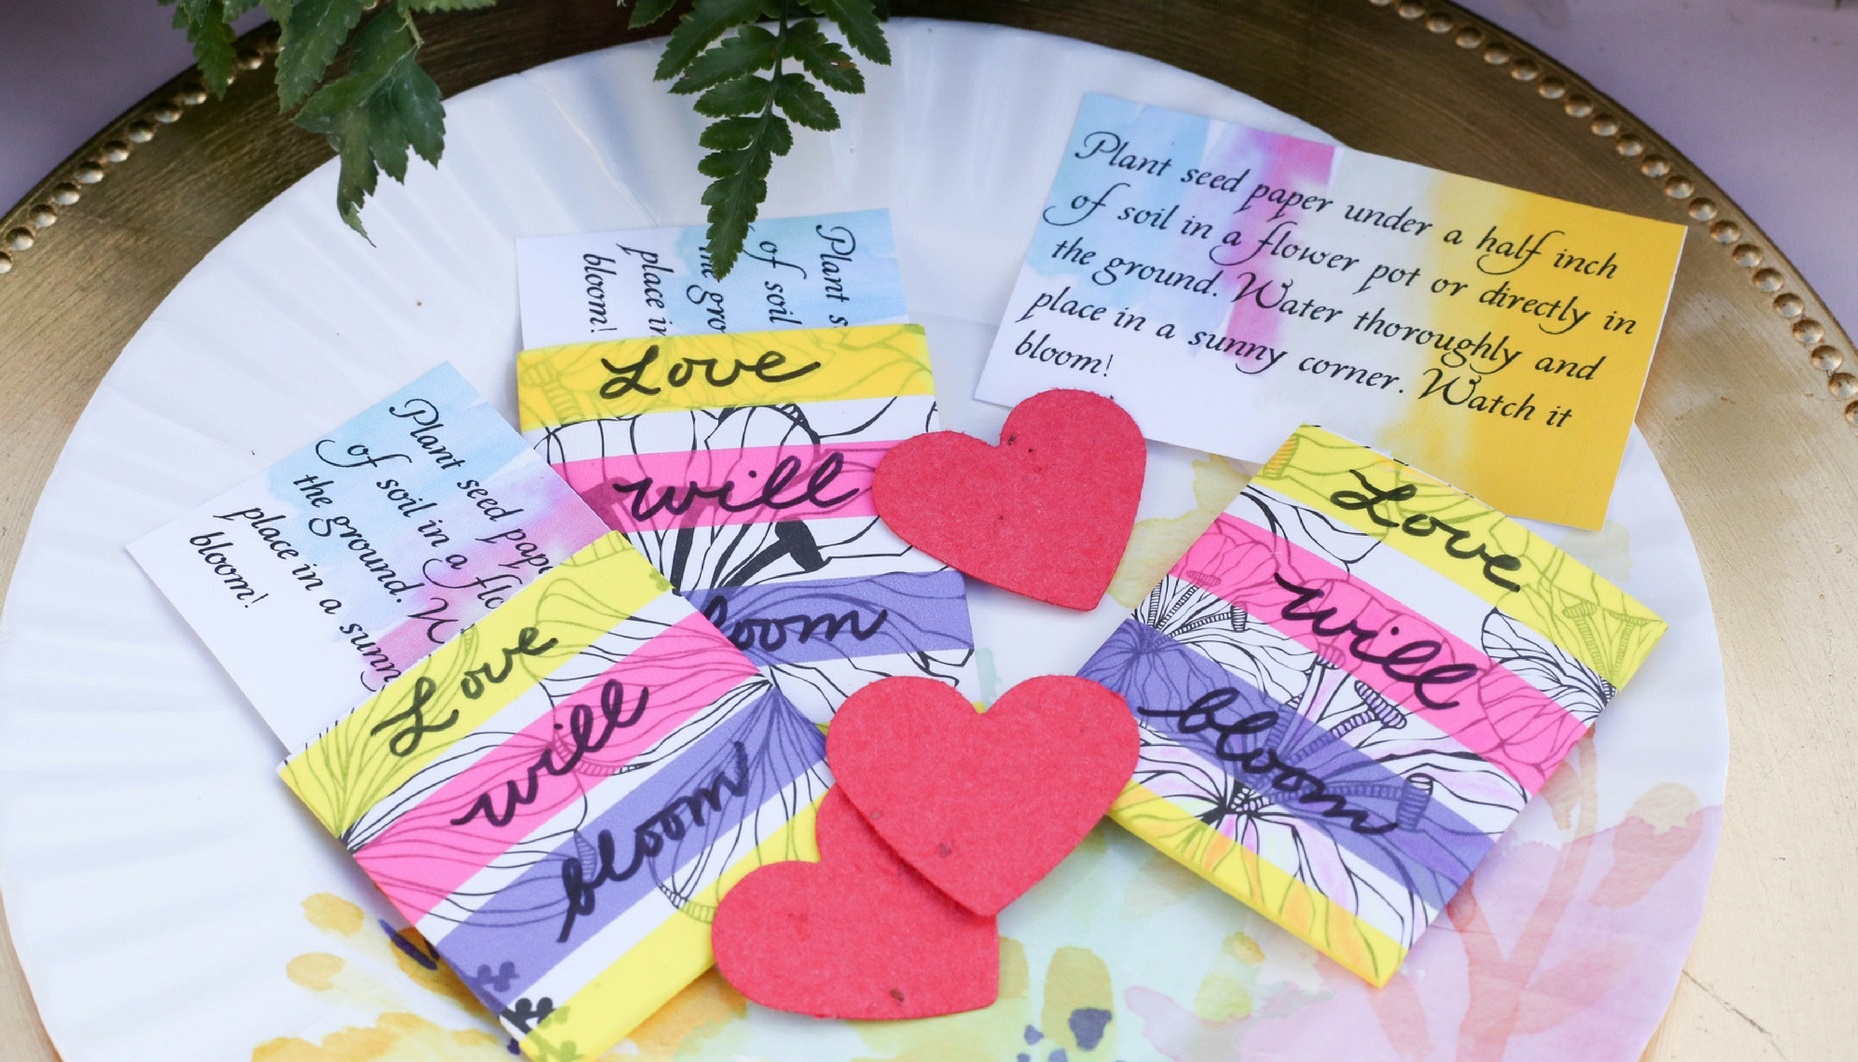 Plant seed paper under a half inch
of soil in a flower pot or directly in
the ground. Water thoroughly and
place in a sunny corner. Watch it
bloom!
Plant
of soil
gro
place in
bloom!
Love
will
loom
Plant seed pap
of soil in a flo
the ground. W
place in a sunn
bloom!
Love
will
bloom
Love
will
bloom